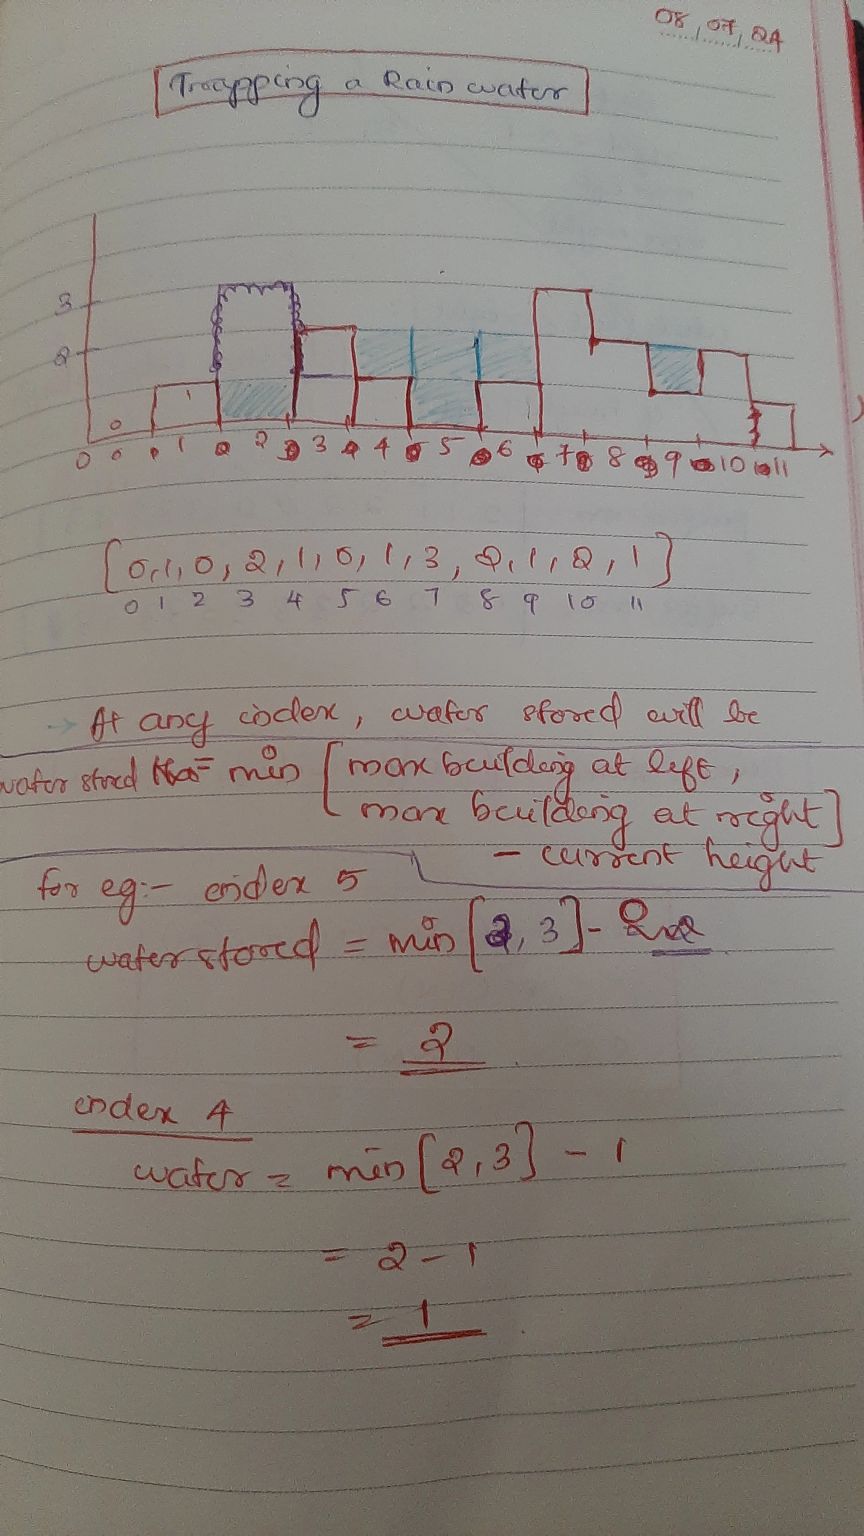 08/07/24
Trapping a Rain water
3
2
0
1
0 0 1 2 3 4 5 6 7 8 9 10 11
[0,1,0,2,1,0,1,3,2,1,2,1]
0 1 2 3 4 5 6 7 8 9 10 11
→ At any index, water stored will be
water stored = min [max building at left,
max building at right]
- current height
for eg:- index 5
water stored = min [2, 3] -
= 2
index 4
water = min [2,3] - 1
= 2-1
= 1